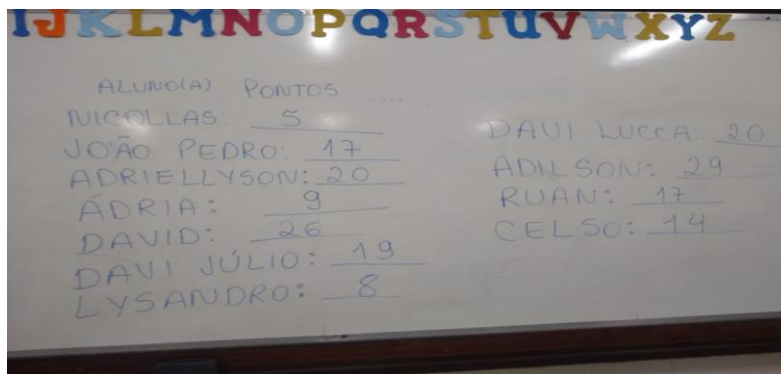 IJKLMNOPQRSTUVWXYZ
ALUNO(A) PONTOS
NICOLLAS: 5
JOÃO PEDRO: 17
ADRIELLYSON: 20
ÁDRIA: 9
DAVID: 26
DAVI JÚLIO: 19
LYSANDRO: 8
DAVI LUCCA: 20
ADILSON: 29
RUAN: 17
CELSO: 14